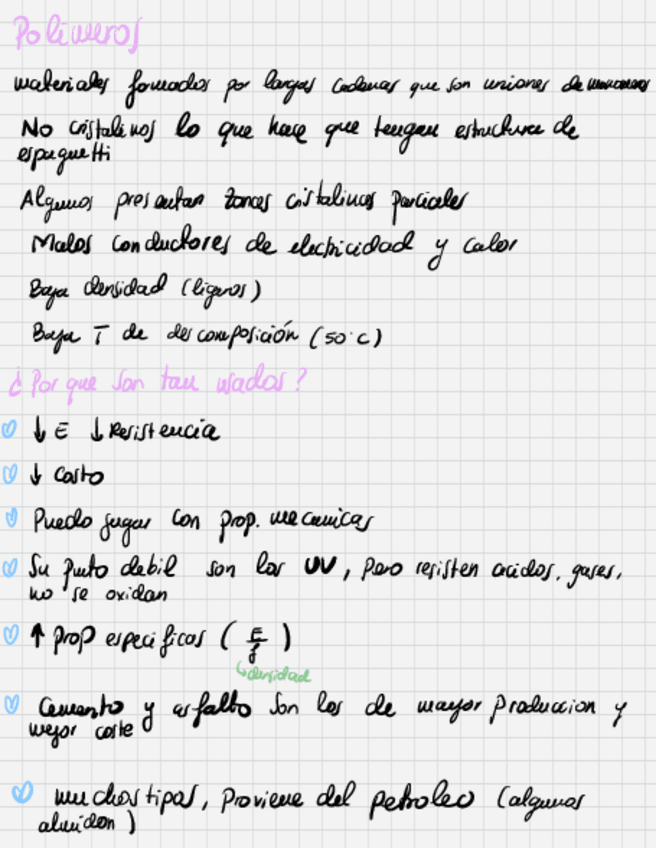 Polimeros
materiales formados por largas cadenas que son uniones de monomeros
No cristalinos lo que hace que tengan estructura de
espaguetti
Algunos presentan zonas cristalinas parciales
Malos conductores de electricidad y calor
Baja densidad (ligeros)
Baja T de descomposición (50°C)
¿Por que son tan usados?
↓ E ↓ Resistencia
↓ Costo
Puedo jugar con prop. mecanicas
Su punto debil son los UV, pero resisten acidos, gases,
no se oxidan
↑ prop especificas (E/ρ)
↳densidad
Cemento y asfalto son los de mayor produccion y
mejor coste
muchos tipos, Proviene del petroleo (algunos
almidon)